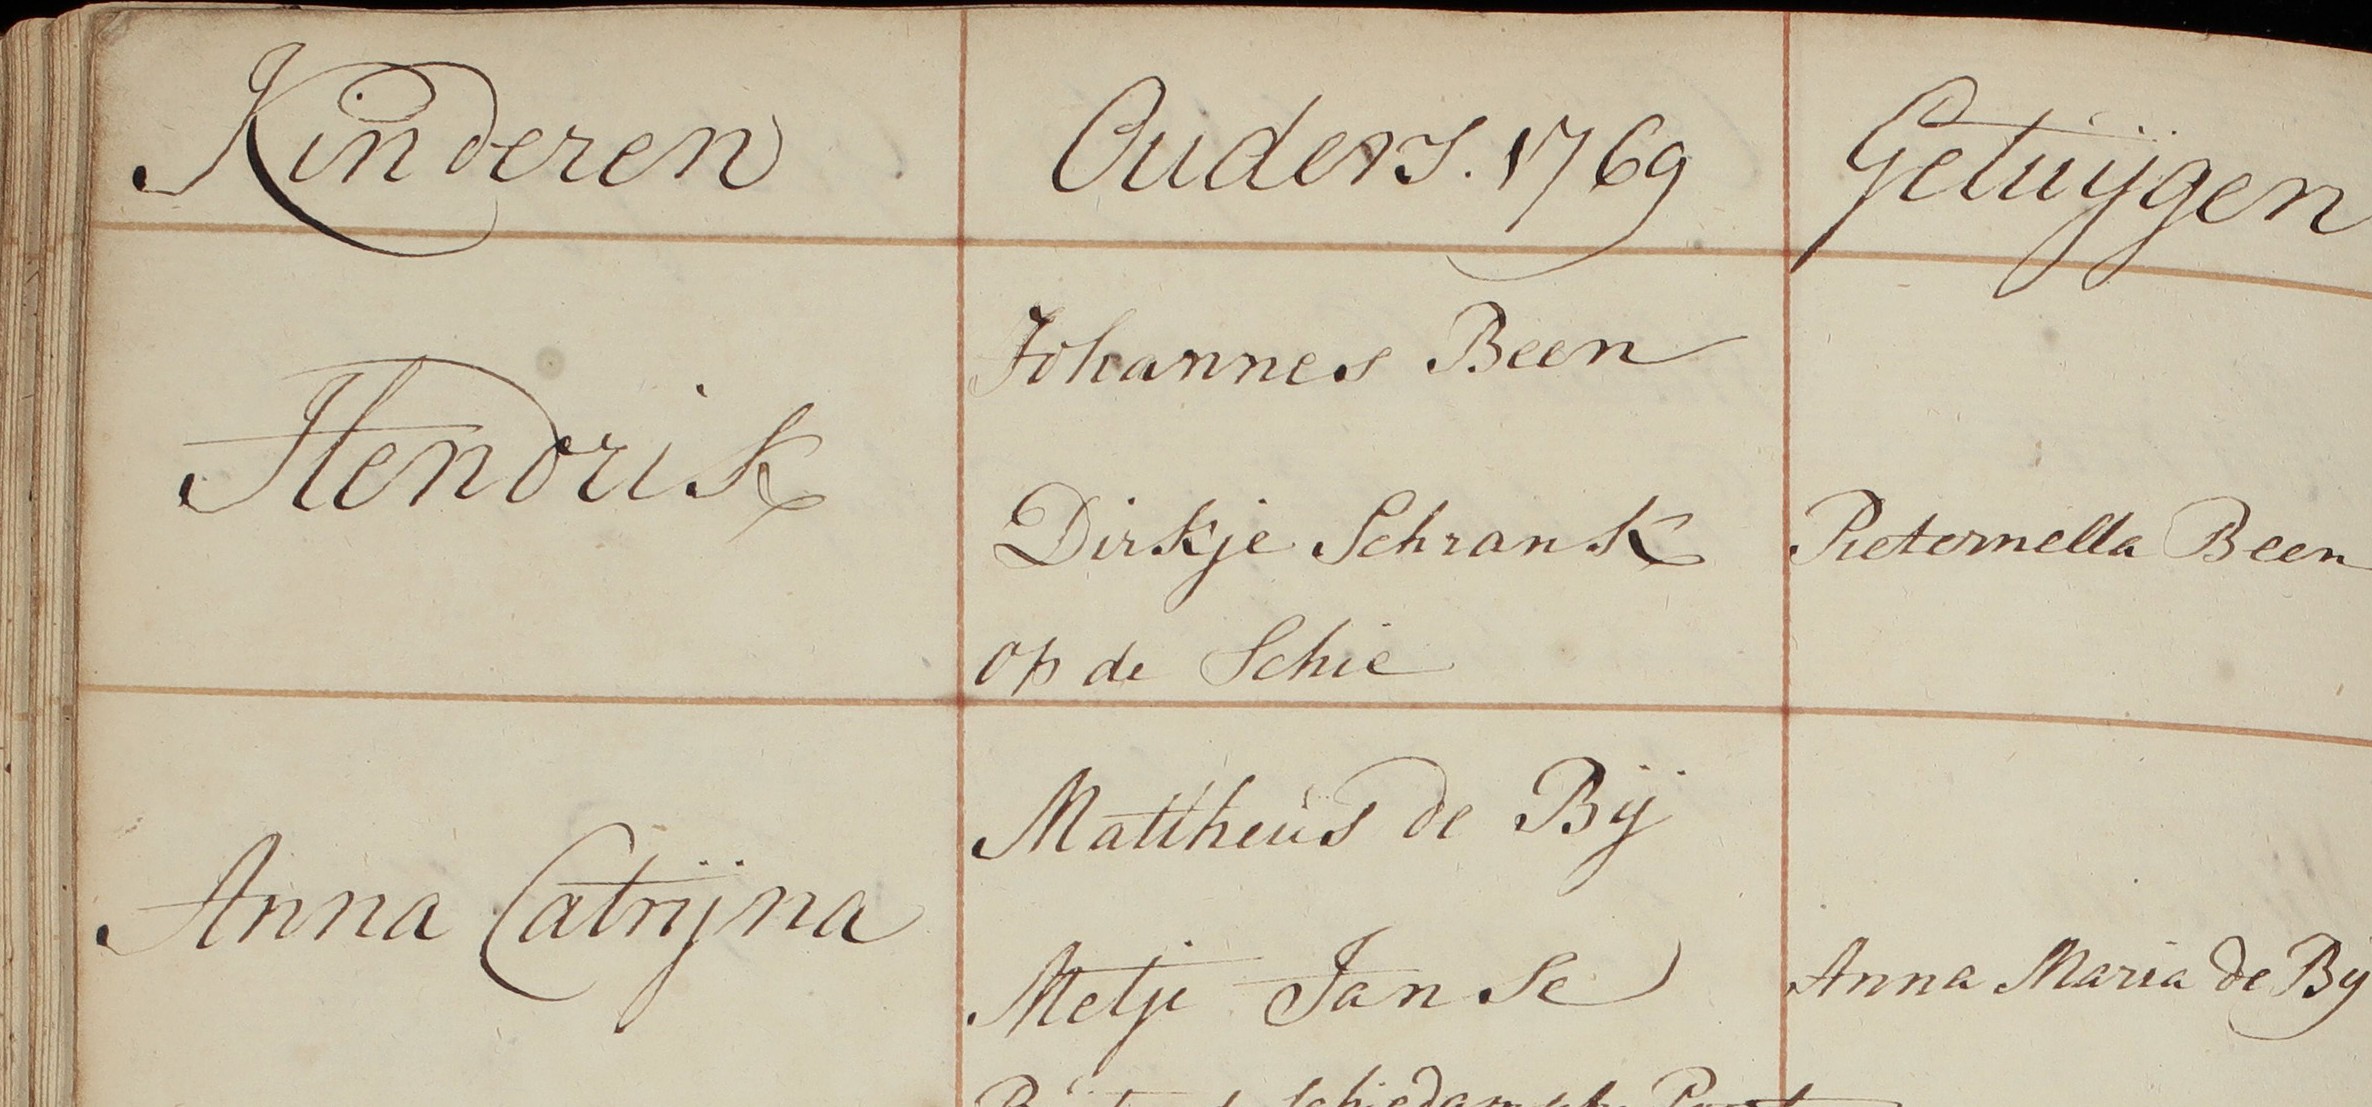 Kinderen
Ouders. 1769
Getuijgen
Hendrik
Johannes Been
Dirkje Schrank
op de Schie
Pieternella Been
Anna Catrijna
Mattheus de Bij
Metje Janse
Anna Maria de Bij